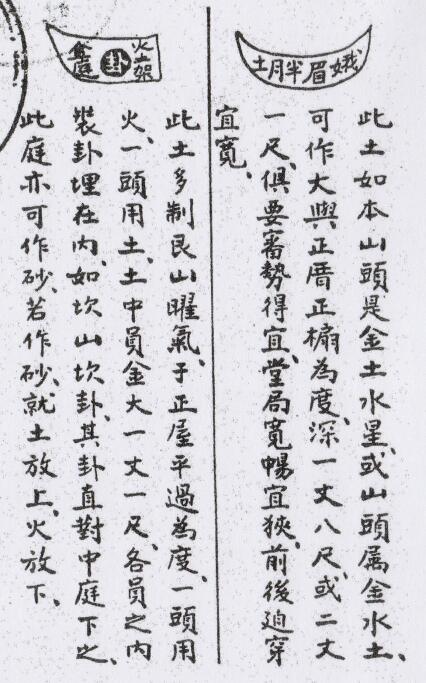 娥眉半月土
此土如本山頭是金土水星、或山頭属金水土、
可作大與正厝正槅為度、深一丈八尺、或二丈
一尺、俱要審勢得宜、堂局寬暢宜狹、前後迫窄
宜寬、
火土架
卦
盒庭
此土多制艮山曜氣、于正屋平過為度、一頭用
火、一頭用土、土中員金大一丈一尺、各員之内
裝卦埋在内、如坎山坎卦、其卦直對中庭下之、
此庭亦可作砂、若作砂、就土放上、火放下、